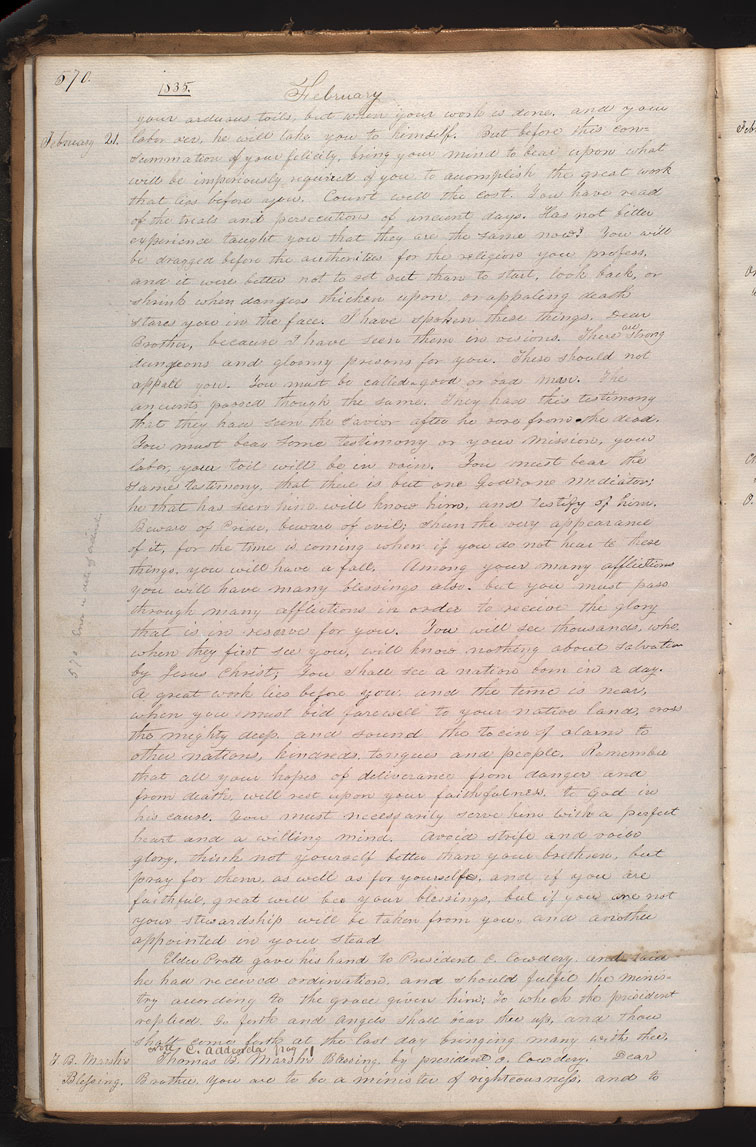 570.
1835.
February
your arduous toils, but when your work is done, and your
February 21.
labor oer, he will take you to himself. But before this con-
summation of your felicity, bring your mind to bear upon what
will be imperiously required of you to acomplish the great work
that lies before you. Count well the cost. You have read
of the trials and persecutions of ancient days. Has not bitter
experience taught you that they are the same now? You will
be dragged before the authorities for the religion you profess,
and it were better not to set out than to start, look back, or
shrink when dangers thicken upon, or appaling death
stares you in the face. I have spoken these things, Dear
Brother, because I have seen them in visions. There are strong
dungeons and gloomy prisons for you. These should not
appall you. You must be called a good or bad man. The
ancients passed though the same. They had this testimony
that they had seen the Savior after he rose from the dead.
You must bear some testimony or your mission, your
labor, your toil will be in vain. You must bear the
same testimony, that there is but one God, one Mediator;
he that has seen him will know him, and testify of him.
Beware of Pride, beware of evil; shun the very appearance
of it, for the time is coming when if you do not hear to these
things, you will have a fall. Among your many afflictions
you will have many blessings also. but you must pass
through many afflictions in order to receive the glory
that is in reserve for you. You will see thousands, who,
when they first see you, will know nothing about salvation
by Jesus Christ; You shall see a nation born in a day.
A great work lies before you, and the time is near,
when you must bid farewell to your native land, cross
the mighty deep, and sound the tocin of alarm to
other nations, kindreds, tongues and people. Remember
that all your hopes of deliverance from danger and
from death, will rest upon your faithfulness to God in
his cause. You must necessarily serve him with a perfect
heart and a willing mind. Avoid strife and vain
glory, think not yourself better than your brethren, but
pray for them, as well as for yourself, and if you are
faithful, great will be your blessings, but if you are not
your stewardship will be taken from you, and another
appointed in your stead
Elder Pratt gave his hand to President O. Cowdery, and said
he had received ordination, and should fulfil the minis-
try according to the grace given him; to which the president
replied, Go forth and Angels shall bear thee up, and thou
shalt come forth at the last day bringing many with thee.
Note C. addenda pag 1
T. B. Marsh's
Thomas B. Marsh's Blessing by president O. Cowdery. Dear
Blessing.
Brother, you are to be a minister of righteousness, and to